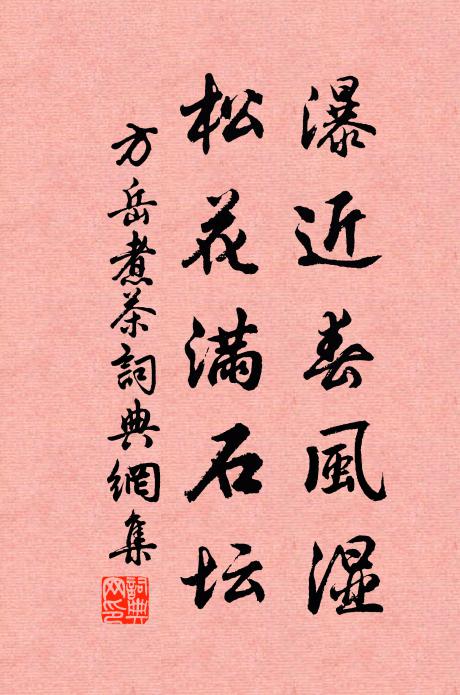 瀑近春風湿
松花满石坛
方岳煮茶詞典網集
詞典
网印